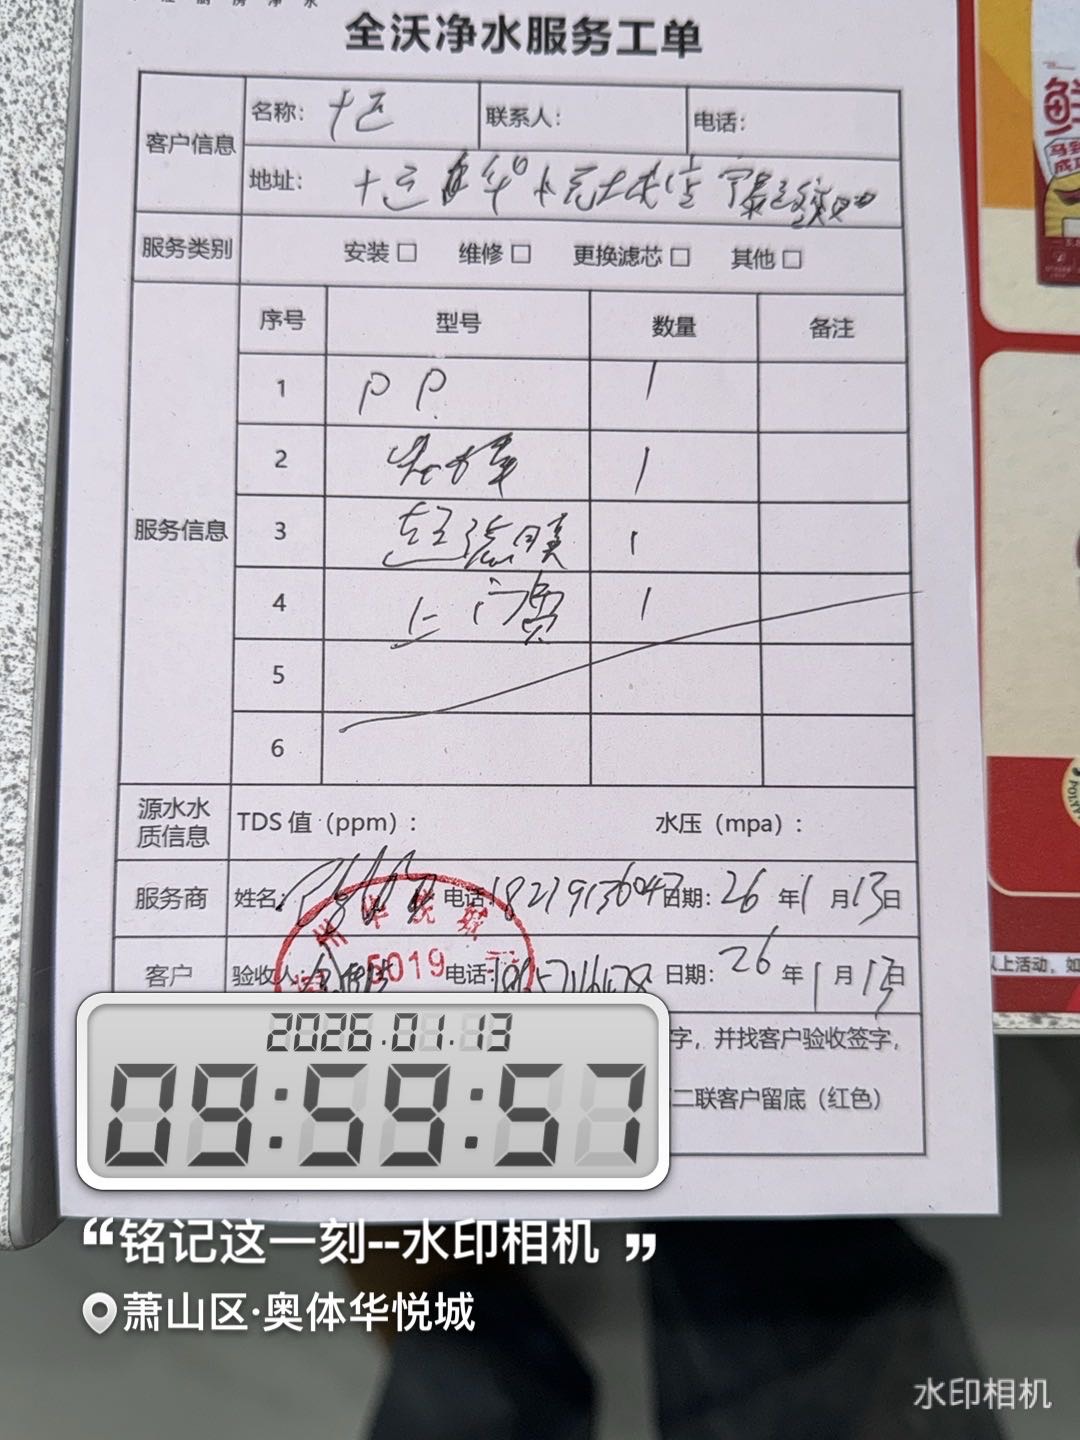 全沃净水服务工单
客户信息
名称：十足
联系人：
电话：
地址：十足
服务类别
安装□ 维修□ 更换滤芯□ 其他□
服务信息
序号 型号 数量 备注
1 PP 1
2 1
3 超滤膜 1
4 上门费 1
5
6
源水水质信息
TDS 值（ppm）：
水压（mpa）：
服务商 姓名： 电话：18271913604 日期：26 年 1 月 13 日
客户 验收人： 电话： 日期：26 年 1 月 13 日
5019
字，并找客户验收签字，
二联客户留底（红色）
2026.01.13
09:59:57
“铭记这一刻--水印相机 ”
萧山区·奥体华悦城
水印相机
鲜
马到
成功
以上活动，如